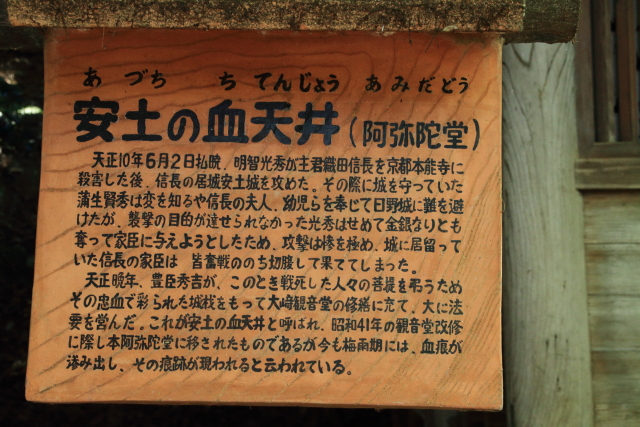 あづち ち てんじょう あみだどう
安土の血天井(阿弥陀堂)
天正10年6月2日払暁、明智光秀が主君織田信長を京都本能寺に
殺害した後、信長の居城安土城を攻めた。その際に城を守っていた
蒲生賢秀は変を知るや信長の夫人、幼児らを奉じて日野城に難を避
けたが、襲撃の目的が達せられなかった光秀はせめて金銀なりとも
奪って家臣に与えようとしたため、攻撃は惨を極め、城に居留って
いた信長の家臣は 皆奮戦ののち切腹して果ててしまった。
天正晩年、豊臣秀吉が、このとき戦死した人々の菩提を弔うため
その忠血で彩られた城桟をもって大崎観音堂の修繕に充て、大に法
要を営んだ。これが安土の血天井と呼ばれ、昭和41年の観音堂改修
に際し本阿弥陀堂に移されたものであるが今も梅雨期には、血痕が
滲み出し、その痕跡が現われると云われている。